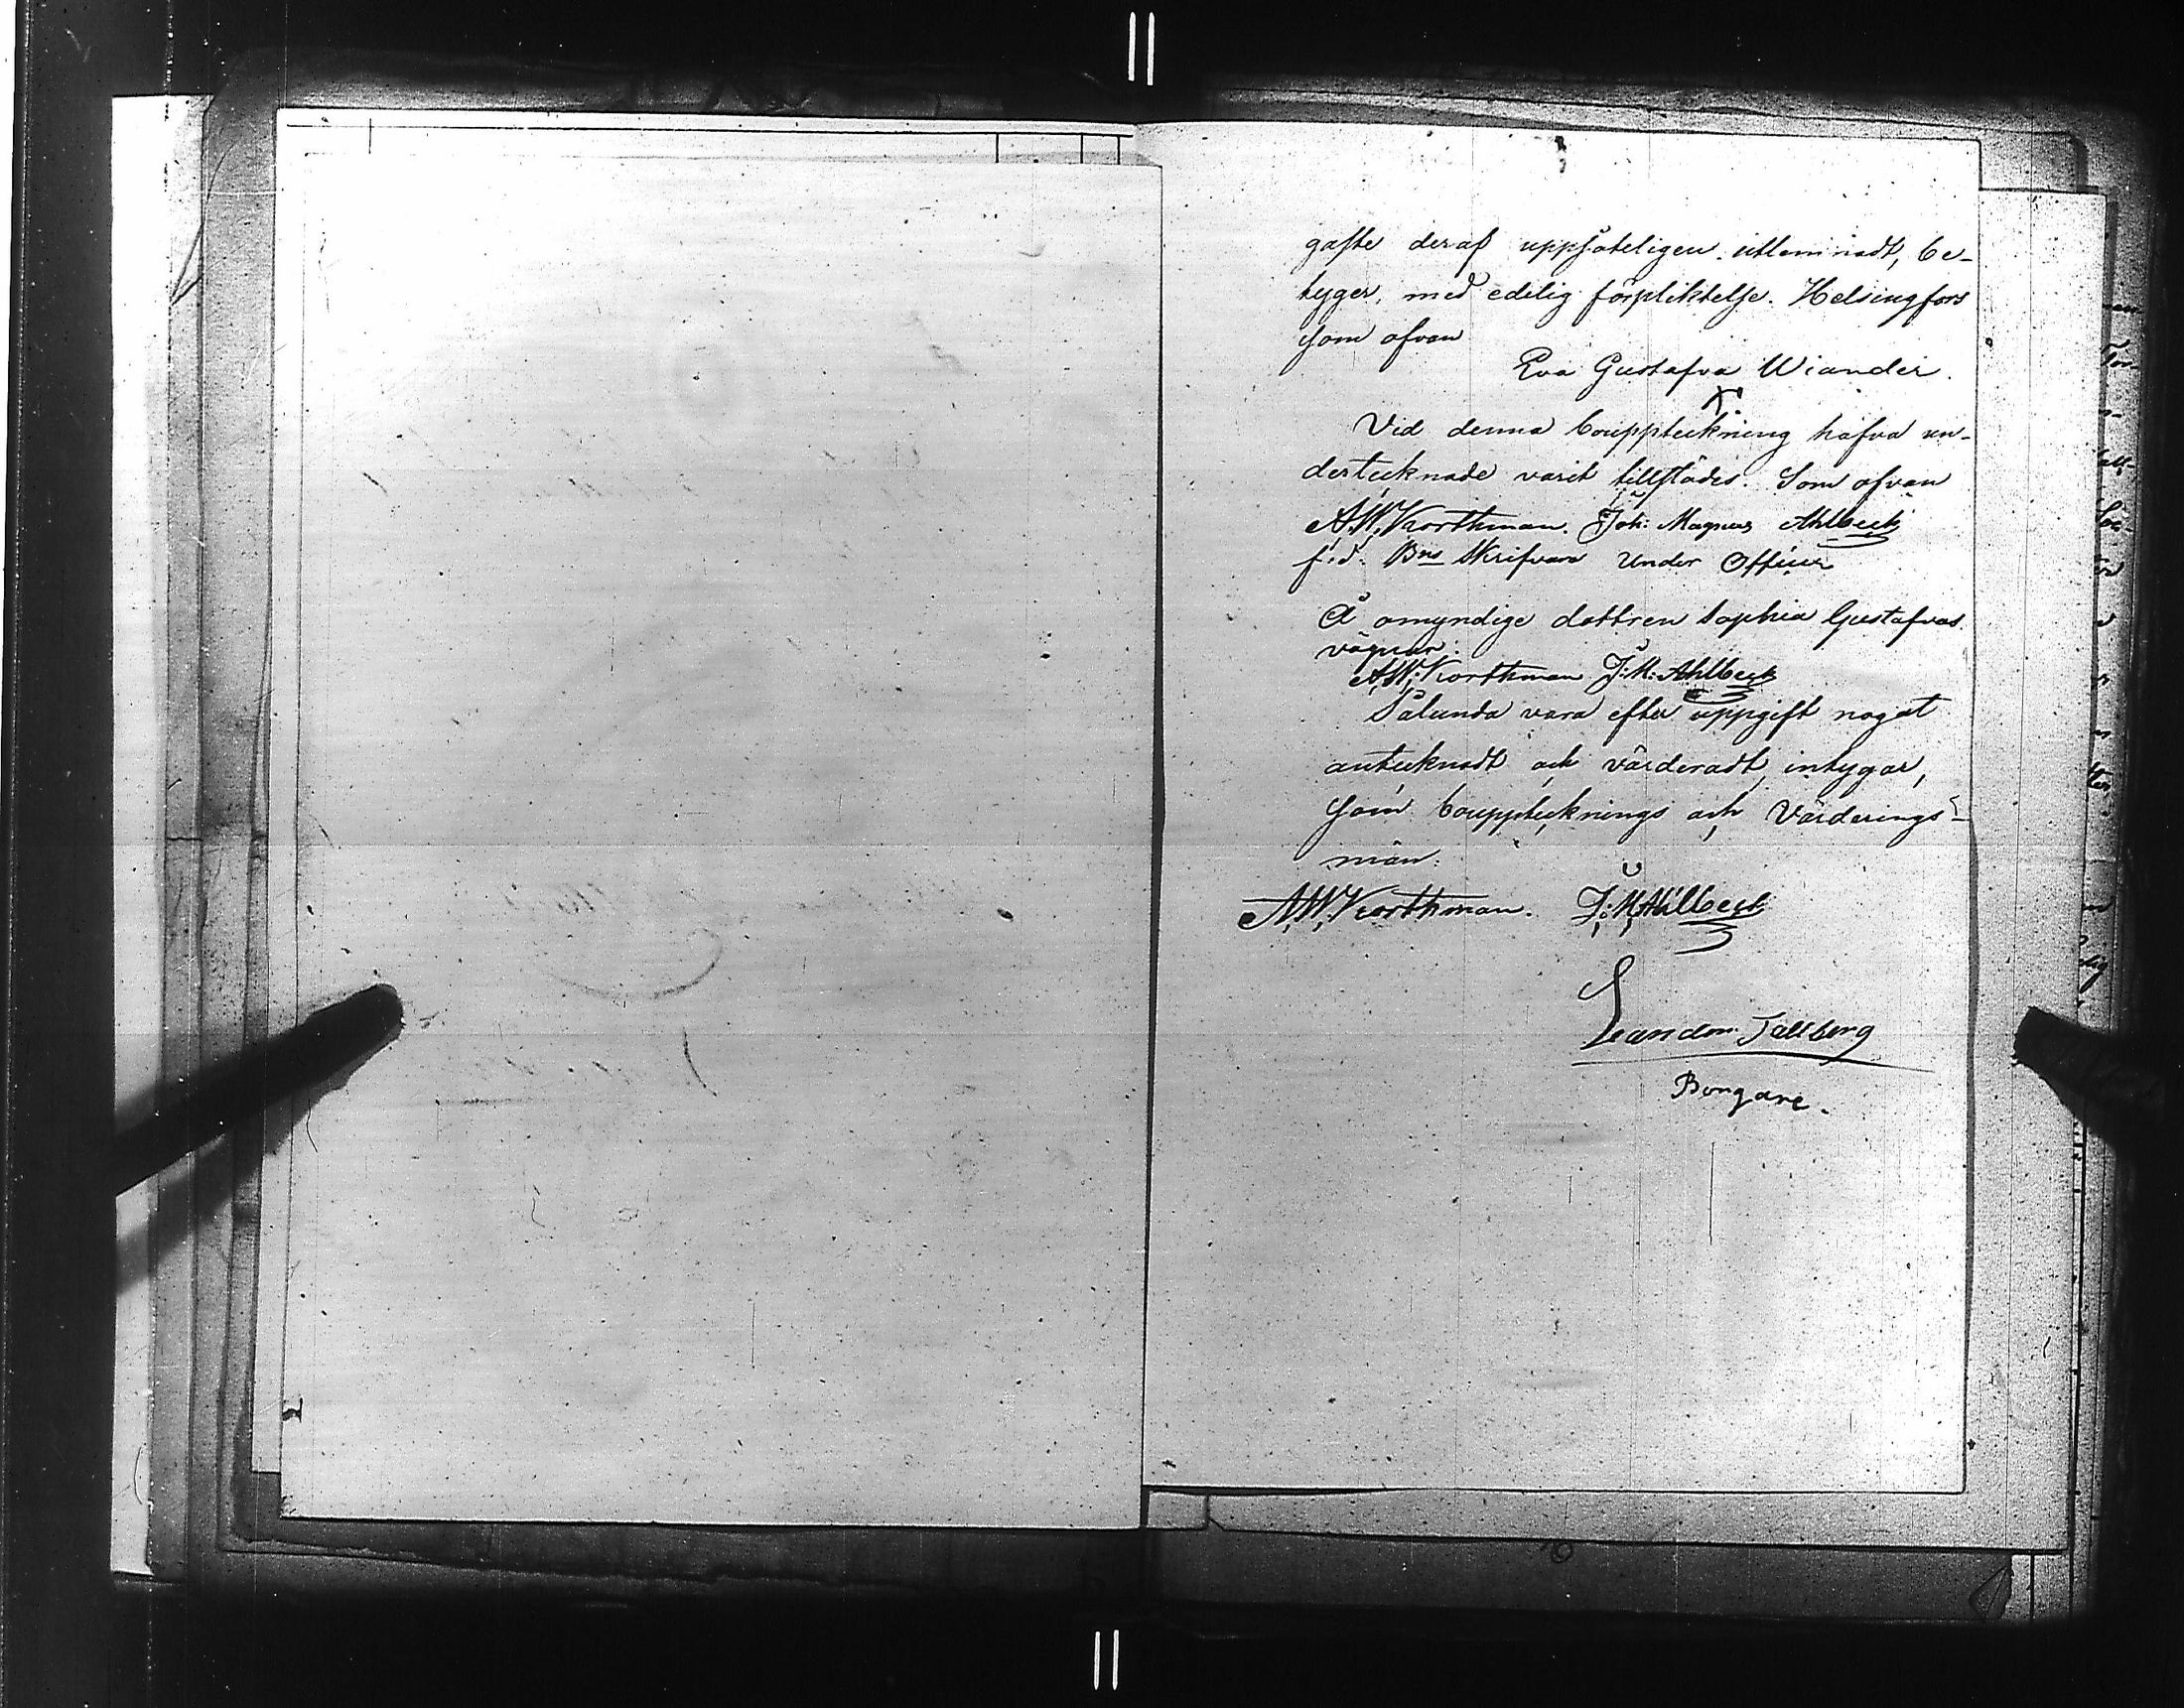 gaste deraf uppsåteligen utlemnadt, be-
tyger, med edelig förpliktelse. Helsingfors
som ofvan
Eva Gustafva Wiander.
X
Vid denna bouppteckning hafva un-
dertecknade varit tillstädes. Som ofvan
A.W. Korthman. Joh: Magnus Ahlbeck
f.d. Bns Skrifvare Under Officer
Å omyndige dottren Sophia Gustafvas
vägnar.
A.W. Korthman J: M: Ahlbeck
Sålunda vara efter uppgift nogat
antecknadt och värderadt, intygar,
som boupptecknings och Värderings-
män.
A.W. Korthman. J: M: Ahlbeck
Leander Tallberg
Borgare.